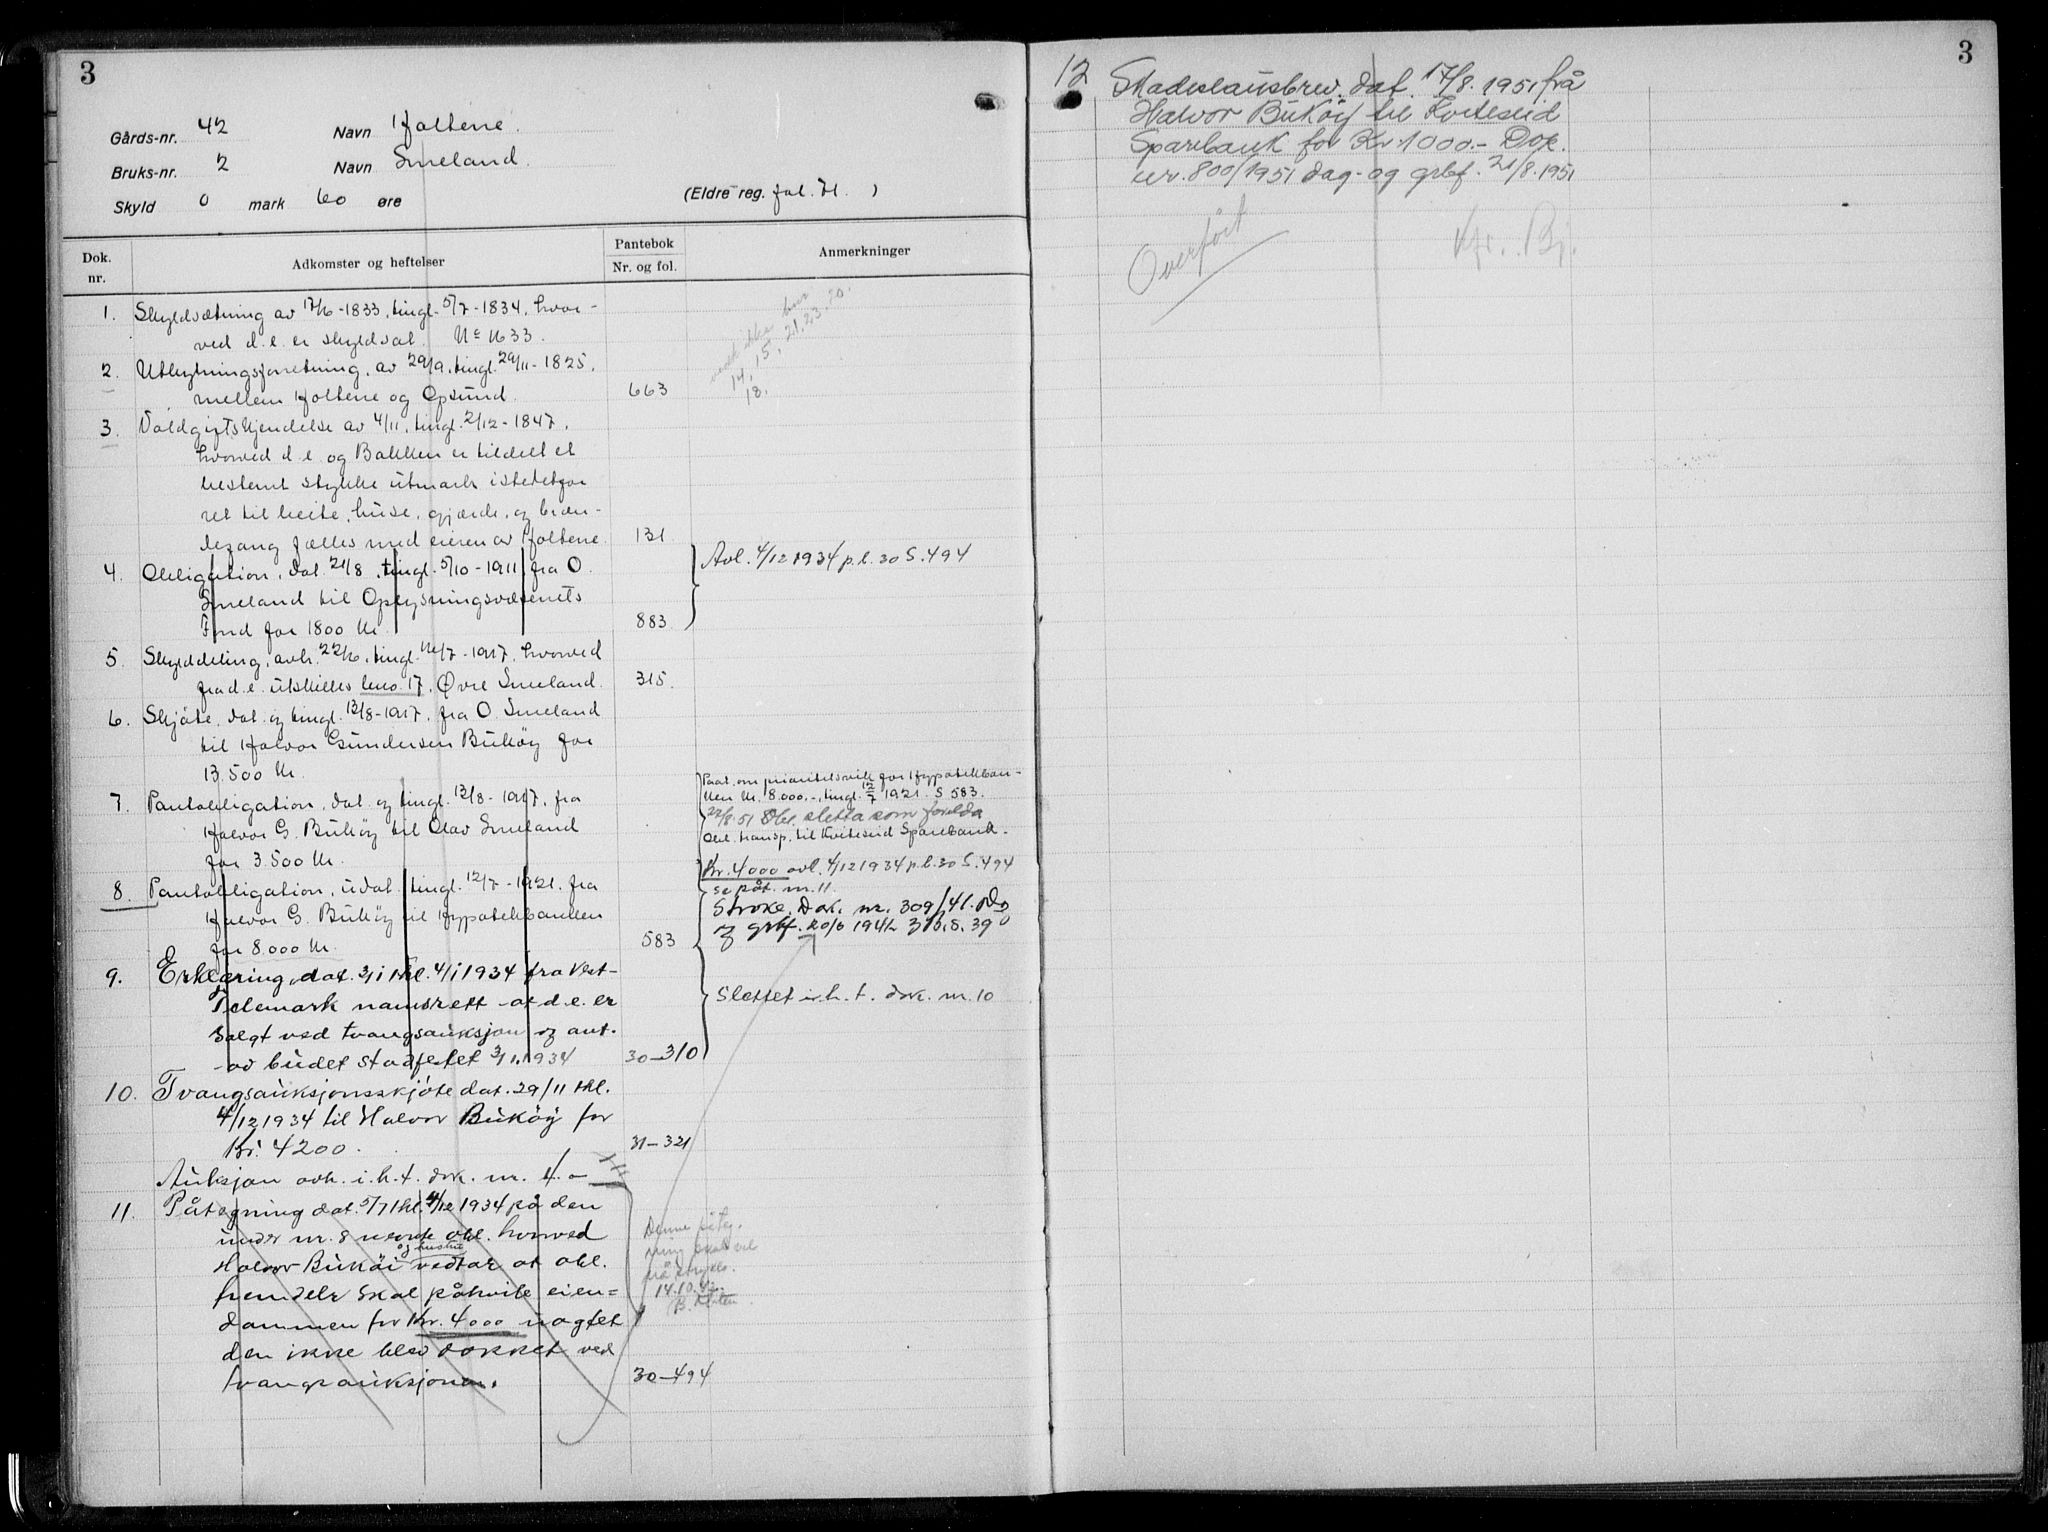 3
Gårds-nr. 42 Navn Holtene.
Bruks-nr. 2 Navn Smeland.
Skyld 0 mark 60 øre (Eldre reg. fol. 71. )
Dok. nr.
Adkomster og heftelser
Pantebok
Nr. og fol.
Anmerkninger
1. Skyldsætning av 17/6-1833, tingl. 5/7-1834, hvor-
ved d.e. er skyldsat.
2. Utskytningsforretning, av 29/9, tingl. 29/11-1825,
mellem Holtene og Opsund. 663
3. Voldgiftskjendelse av 4/11, tingl. 2/12-1847,
hvorved d.e. og Bakken er tildelt et
bestemt stykke utmark istedetfor
ret til beite, huse, gjærde, og bræn-
degang fælles med eieren av Holtene. 131
4. Obligation, dat. 21/8, tingl. 5/10-1911, fra O.
Smeland til Oplysningsvæsenets
Fond for 1800 Kr. 883
Avl. 4/12 1934 p.b. 30 S. 494
5. Skylddeling, avh. 22/6, tingl. 14/7-1917, hvorved
fra d.e. utskilles bno. 17, Øvre Smeland. 315.
6. Skjøte, dat. og tingl. 13/8-1917, fra O. Smeland
til Halvor Gundersen Buköy for
13.500 Kr.
7. Pantobligation, dat. og tingl. 13/8-1917, fra
Halvor G. Buköy til Olav Smeland
for 3.500 Kr.
Paat. om prioritetsvik. for Hypotekban-
ken Kr. 8.000.-, tingl. 12/7 1921. S 583.
22/8.51 Obl. sletta som forelda
Obl. transp. til Kviteseid Sparebank.
8. Pantobligation, udat. tingl. 12/7-1921, fra
Halvor G. Buköy til Hypotekbanken
for 8.000 Kr. 583
Kr. 4000 avl. 4/12 1934 p.b. 30 S. 494
se påt. nr. 11.
Stroke. Dok. nr. 309/41. Dag
og grbf.
9. Erklæring, dat. 3/1 thl. 4/1 1934 fra Vest-
Telemark namsrett at d.e. er
solgt ved tvangsauksjon og aut.
av budet stadfestet 3/1.1934 30-310
Slettet i.h.t. dok. nr. 10
10. Tvangsauksjonsskjöte dat. 29/11 thl.
4/12 1934 til Halvor Buköy for
Kr. 4200. 31-321
Auksjon avh. i.h.t. dok. nr. 4.
11. Påtegning dat. 5/7 thl. 4/12 1934 på den
under nr. 8 nevnte obl. hvorved
og hustru
Halvor Buköi vedtar at obl.
fremdeles skal påhvile eien=
dommen for Kr. 4000 uagtet
den ikke blev dækket ved
tvangsauksjonen. 30-494
Denne påteg-
ning skal vel
14.10.42.
3
12 Skadeslausbrev. dat. 17/8. 1951 frå
Halvor Buköy til Kviteseid
Sparebank for Kr 1000.- Dok.
nr. 800/1951 dag- og grbf. 21/8. 1951
Overført